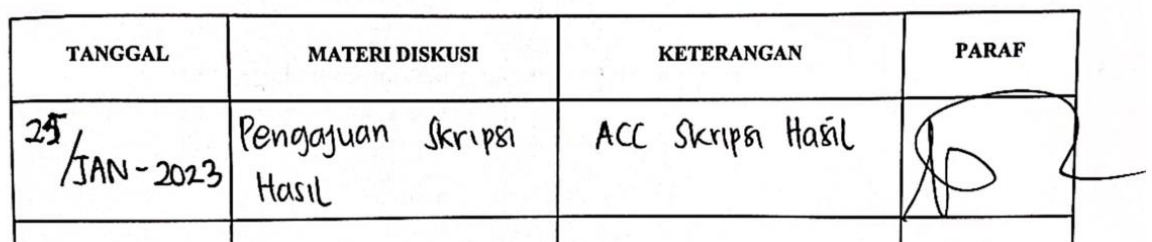 TANGGAL MATERI DISKUSI KETERANGAN PARAF
25/JAN-2023 Pengajuan Skripsi ACC Skripsi Hasil
Hasil